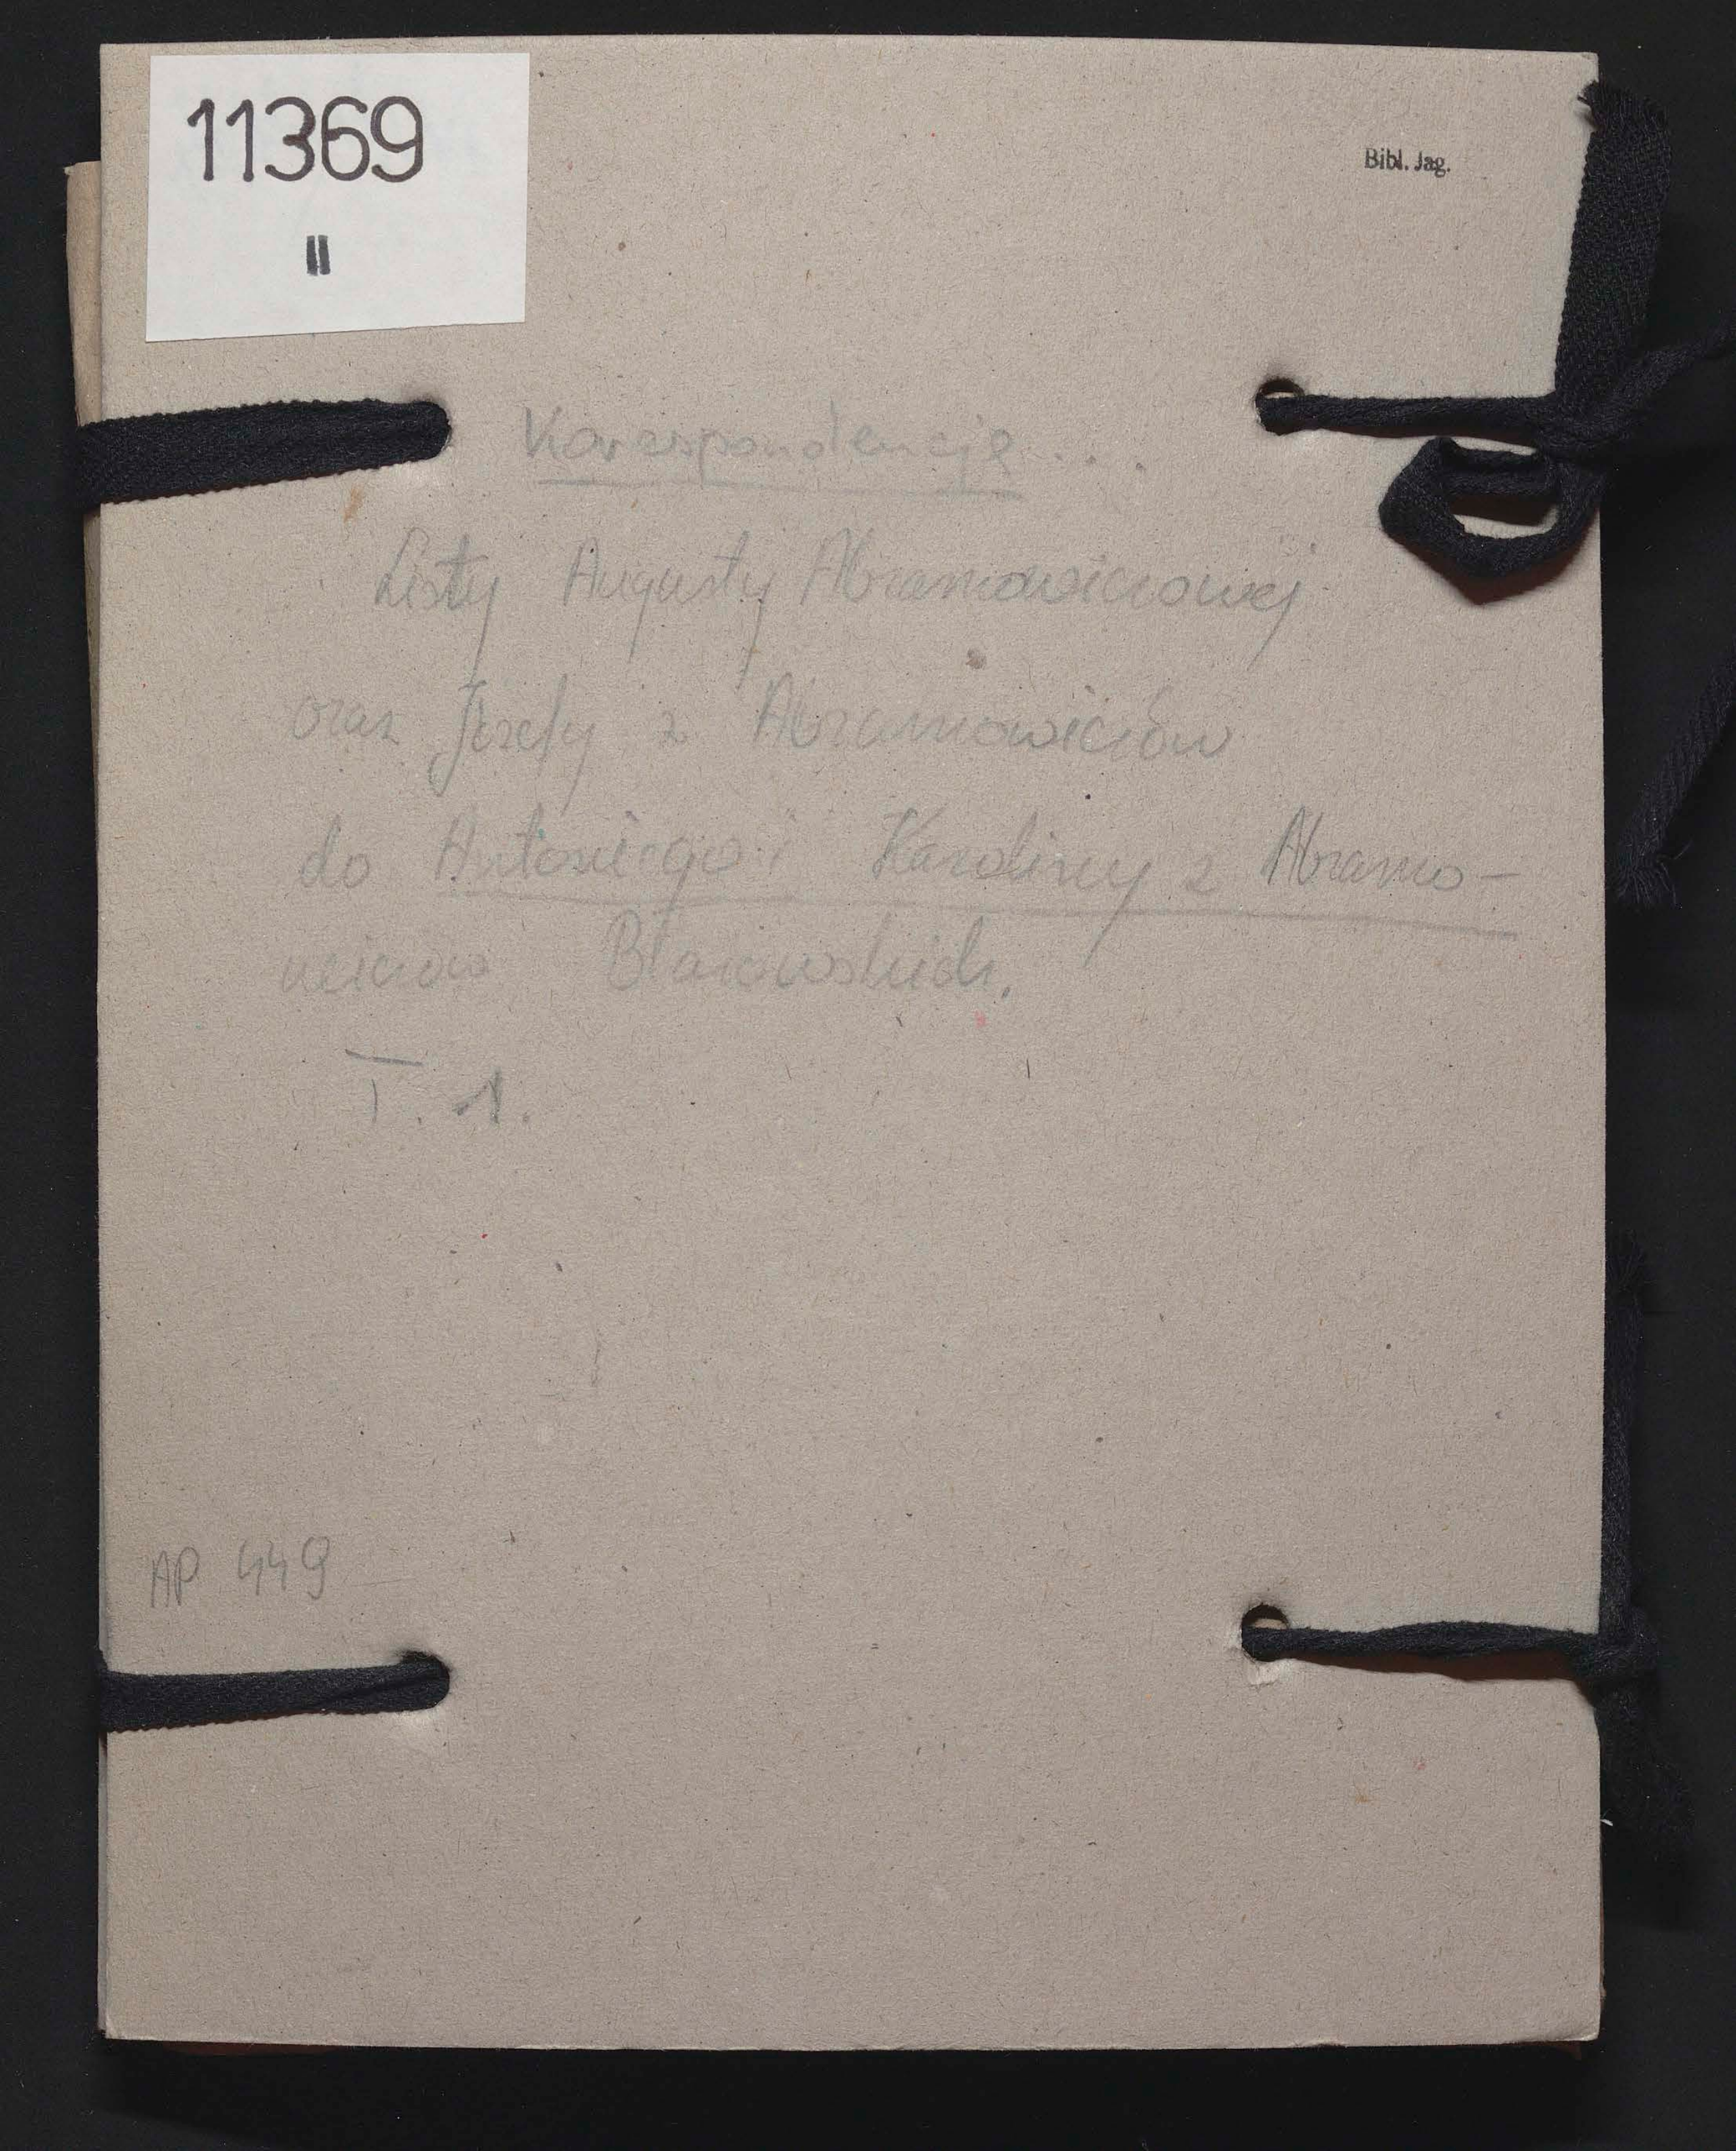 11369
II
Bibl. Jag.
Korespondencje...
Listy Augusty Abramowiczowej
oraz Józefy z Abramowiczów
do Antoniego i Karoliny z Abramo-
wiczów
T. 1.
AP 449